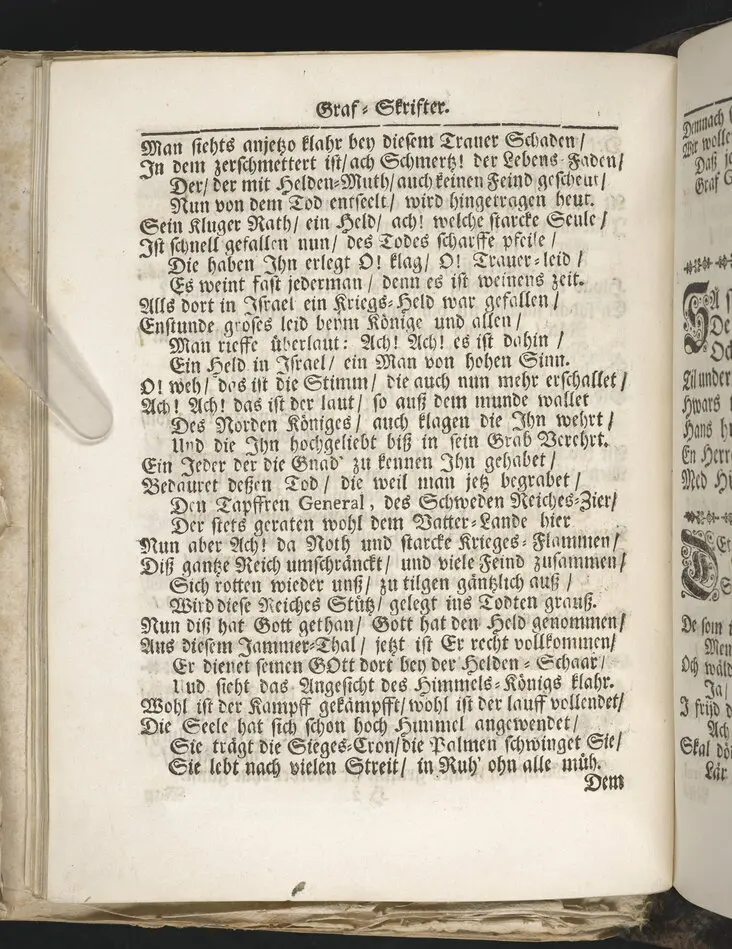 Graf-Skrifter.
Man siehts anjetzo klahr bey diesem Trauer Schaden/
In dem zerschmettert ist/ ach Schmertz! der Lebens-Faden/
Der/ der mit Helden-Muth/ auch keinen Feind gescheut/
Nun von dem Tod entseelt/ wird hingetragen heut.
Sein Kluger Rath/ ein Held/ ach! welche starcke Seule/
Ist schnell gefallen nun/ des Todes scharffe pfeile/
Die haben Ihn erlegt O! klag/ O! Trauer-leid/
Es weint fast jederman/ denn es ist weinens zeit.
Alls dort in Israel ein Kriegs-Held war gefallen/
Enstunde groses leid beym Könige und allen/
Man rieffe überlaut: Ach! Ach! es ist dahin/
Ein Held in Israel/ ein Man von hohen Sinn.
O! weh/ das ist die Stimm/ die auch nun mehr erschallet/
Ach! Ach! das ist der laut/ so auß dem munde wallet
Des Norden Königes/ auch klagen die Ihn wehrt/
Und die Ihn hochgeliebt biß in sein Grab Verehrt.
Ein Jeder der die Gnad' zu kennen Ihn gehabet/
Bedauret deßen Tod/ die weil man jetz begrabet/
Den Tapffren General, des Schweden Reiches-Zier/
Der stets geraten wohl dem Vatter-Lande hier
Nun aber Ach! da Noth und starcke Krieges-Flammen/
Diß gantze Reich umschränckt/ und viele Feind zusammen/
Sich rotten wieder unß/ zu tilgen gäntzlich auß/
Wird diese Reiches Stütz/ gelegt ins Todten grauß.
Nun diß hat Gott gethan/ Gott hat den Held genommen/
Aus diesem Jammer-Thal/ jetzt ist Er recht vollkommen/
Er dienet seinen GOtt dort bey der Helden-Schaar/
Und sieht das Angesicht des Himmels-Königs klahr.
Wohl ist der Kampff gekämpfft/ wohl ist der lauff vollendet/
Die Seele hat sich schon hoch Himmel angewendet/
Sie trägt die Sieges-Cron/ die Palmen schwinget Sie/
Sie lebt nach vielen Streit/ in Ruh' ohn alle müh.
Dem
Demnach
Wir wolle
Daß
Graf
De
Och
Til under
Hwars
Hans
En Herr
Med
De som
Men
Och
Ja/
I frijd
Ach
Skal
Lär